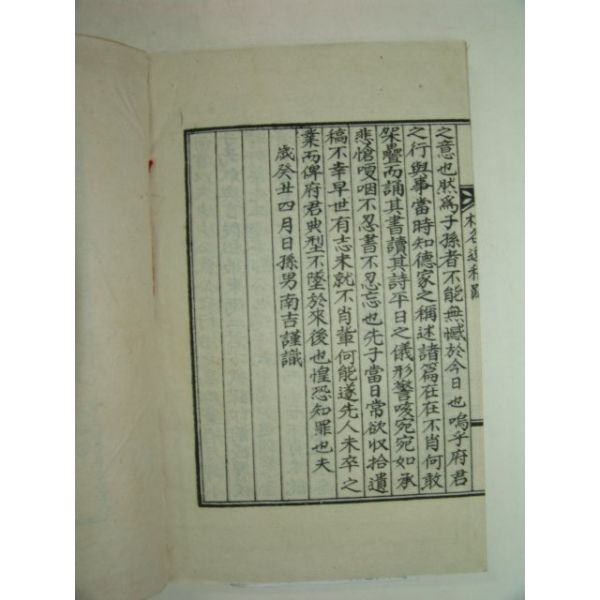 之意也然爲子孫者不能無憾於今日也嗚乎府君
之行與事當時知德家之稱述諸篇在在不肖何敢
架疊而誦其書讀其詩平日之儀形謦咳宛宛如承
悲愴哽咽不忍書不忍忘也先子當日常欲收拾遺
稿不幸早世有志未就不肖輩何能遂先人未卒之
業而俾府君典型不墜於來後也惶恐知罪也夫
歲癸丑四月日孫男南吉謹識